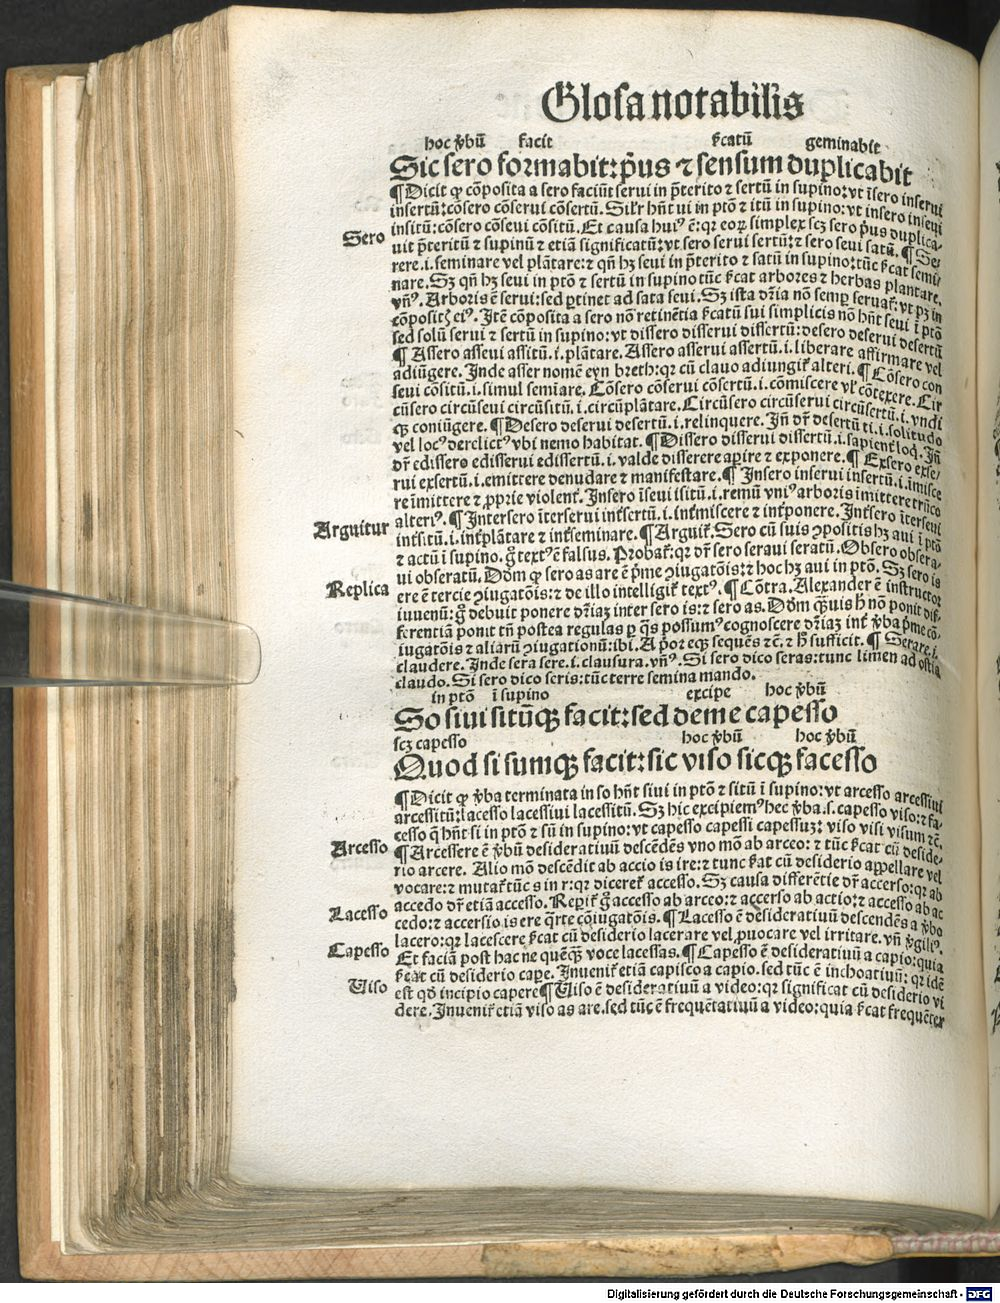 Glosa notabilis
hoc v̄bū facit ſ̄catū geminabit
Sic sero formabit: p̄us ⁊ sensum duplicabit
¶ Dicit ꝙ cōposita a sero faciūt serui in p̄terito ⁊ sertū in supino: vt īsero inserui
insertū: cōsero cōserui cōsertū. Sil'r hn̄t ui in ptō ⁊ itū in supino: vt insero inseui
insitū: cōsero cōseui cōsitū. Et causa huiꝰ ē: qꝛ eoꝝ simplex scꝫ sero p̄us duplica⸗
Sero
uit p̄teritū ⁊ supinū ⁊ etiā significatū: vt sero serui sertū: ⁊ sero seui satū. ¶ Se⸗
rere .i. seminare vel plātare: ⁊ qn̄ hꝫ seui in p̄terito ⁊ satū in supino: tūc ſ̄cat semi⸗
nare. Sꝫ qn̄ hꝫ seui in ptō ⁊ sertū in supino tūc ſ̄cat arbores ⁊ herbas plantare.
vn̄ꝰ. Arboris ē serui: sed ꝑtinet ad sata seui. Sꝫ ista dr̄ia nō semꝑ seruat̄: vt pꝫ in
cōpositꝭ eiꝰ. Itē cōposita a sero nō retinētia ſ̄catū sui simplicis nō hn̄t seui ī ptō
sed solū serui ⁊ sertū in supino: vt dissero disserui dissertū: desero deserui desertū
¶ Assero asseui assitū .i. plātare. Assero asserui assertū .i. liberare affirmare vel
adiūgere. Inde asser nomē eyn breth: qꝛ cū clauo adiungit̄ alteri. ¶ Cōsero con
seui cōsitū .i. simul semiare. Cōsero cōserui cōsertū .i. cōmiscere vl' cōtexere. Cir
cūsero circūseui circūsitū .i. circūplātare. Circūsero circūserui circūsertū .i. vndi
qꝫ coniūgere. ¶ Desero deserui desertū .i. relinquere. Jn̄ dr̄ desertū ti .i. solitudo
vel locꝰ derelictꝰ vbi nemo habitat. ¶ Dissero disserui dissertū .i. sapient̄ loq̄. Jn̄
dr̄ edissero edisserui edissertū .i. valde disserere aperire ⁊ exponere. ¶ Exsero exse⸗
rui exsertū .i. emittere denudare ⁊ manifestare. ¶ Insero inserui insertū .i. īmisce
re īmittere ⁊ ꝓprie violent̄. Insero īseui īsitū .i. remū vniꝰ arboris īmittere trūco
Arguitur
alteriꝰ. ¶ Intersero īterserui int̄sertū .i. int̄miscere ⁊ int̄ponere. Int̄sero īterseui
int̄sitū .i. int̄plātare ⁊ int̄seminare. ¶ Arguit̄. Sero cū suis ꝯpositis hꝫ aui ī ptō
⁊ actū ī supino. g̊ textꝰ ē falsus. Probat̄: qꝛ dr̄ sero seraui seratū. Obsero obsera⸗
ui obseratū. Dōm ꝙ sero as are ē p̄me ꝯiugatōis: ⁊ hoc hꝫ aui in ptō. Sꝫ sero is
Replica
ere ē tercie ꝯiugatōis: ⁊ de illo intelligit̄ textꝰ. ¶ Cōtra. Alexander ē instructor
iuuenū: g̊ debuit ponere dr̄iaꝫ inter sero is: ⁊ sero as. Dōm qꝫuis h̄ nō ponit dif⸗
ferentiā ponit tn̄ postea regulas ꝑ q̄s possumꝰ cognoscere dr̄iaꝫ int̄ v̄ba p̄me cō⸗
iugatōis ⁊ aliarū ꝯiugationū: ibi. A p̄or eqꝫ sequēs ⁊c̄. ⁊ h̄ sufficit. ¶ Serare .i.
claudere. Inde sera sere .i. clausura. vn̄ꝰ. Si sero dico seras: tunc limen ad ostia
claudo. Si sero dico seris: tūc terre semina mando.
in ptō ī supino excipe hoc v̄bū
So siui sitūqꝫ facit: sed deme capesso
scꝫ capesso hoc v̄bū hoc v̄bū
Quod si sumqꝫ facit: sic viso sicqꝫ facesso
¶ Dicit ꝙ v̄ba terminata in so hn̄t siui in ptō ⁊ sitū ī supino: vt arcesso arcessiui
arcessitū: lacesso lacessiui lacessitū. Sꝫ hic excipiemꝰ hec v̄ba .s. capesso viso: ⁊ fa⸗
cesso q̄ hn̄t si in ptō ⁊ sū in supino: vt capesso capessi capessuꝫ: viso visi visum ⁊c̄.
Arcesso
¶ Arcessere ē v̄bū desideratiuū descēdēs vno mō ab arceo: ⁊ tūc ſ̄cat cū deside⸗
rio arcere. Alio mō descēdit ab accio is ire: ⁊ tunc ſ̄cat cū desiderio appellare vel
vocare: ⁊ mutat̄ tūc s in r: qꝛ diceret̄ accesso. Sꝫ causa differētie dr̄ accerso: qꝛ ab
accedo dr̄ etiā accesso. Reperit̄ g̊ accesso ab arceo: ⁊ accerso ab actio: ⁊ accesso ab ac
Lacesso
cedo: ⁊ accersio is ere q̄rte cōiugatōis. ¶ Lacesso ē desideratiuū descendēs a v̄bo
lacero: qꝛ lacescere ſ̄cat cū desiderio lacerare vel ꝓuocare vel irritare. vn̄ v̄giliꝰ.
Capesso
Et faciā post hac ne quēqꝫ voce lacessas. ¶ Capesso ē desideratiuū a capio: quia
ſ̄cat cū desiderio cape. Inuenit̄ etiā capisco a capio. sed tūc ē inchoatiuū: qꝛ idē
Uiso
est qd̄ incipio capere ¶ Uiso ē desideratiuū a video: qꝛ significat cū desiderio vi
dere. Inuenit̄ etiā viso as are. sed tūc ē frequētatiuū a video: quia ſ̄cat frequēter
Digitalisierung gefördert durch die Deutsche Forschungsgemeinschaft - DFG